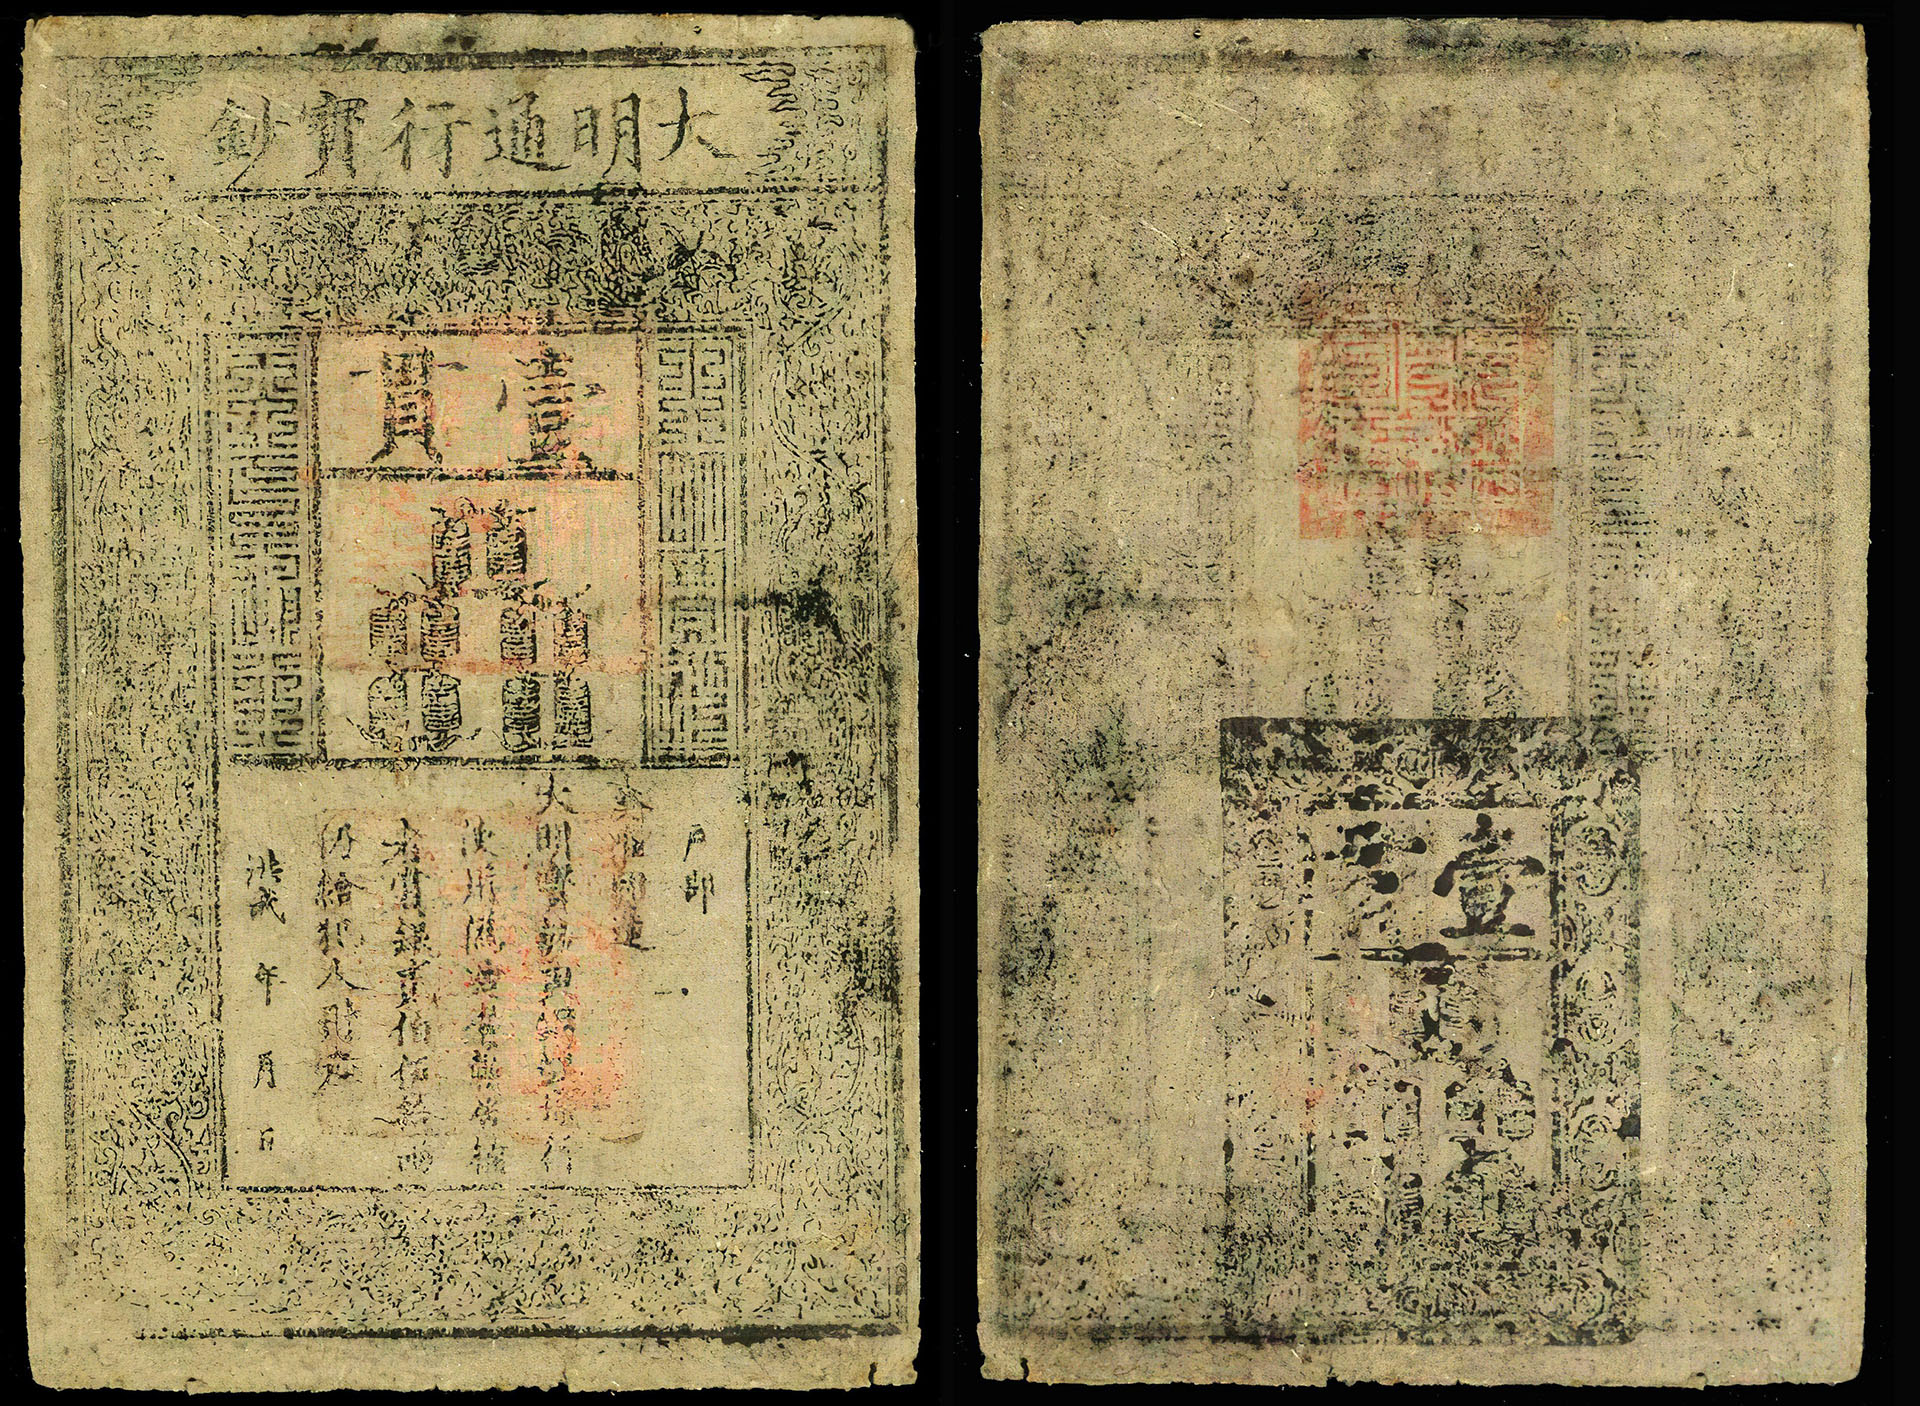 大明通行寶鈔
壹貫
戶部
奏准印造
大明寶鈔與銅錢通行
使用偽造者斬告捕
者賞銀貳伯伍拾兩
仍給犯人財產
洪武 年 月 日
壹